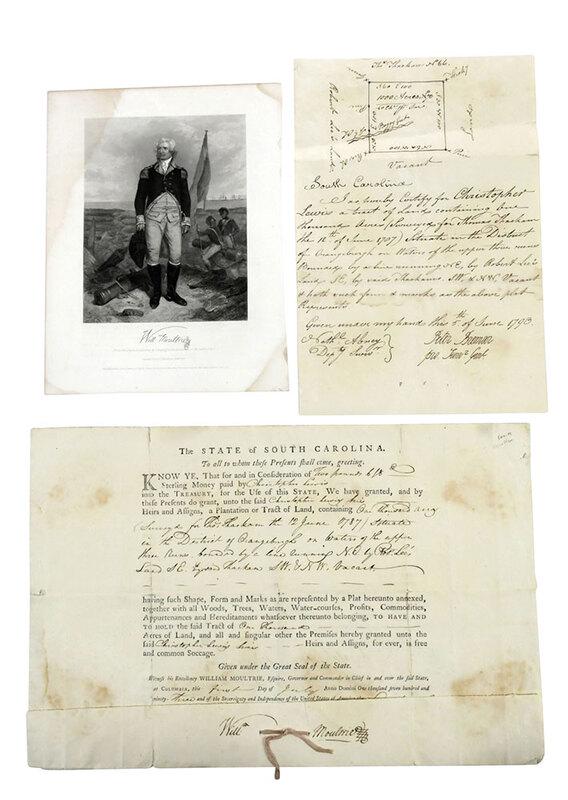 Will Moultrie
Thos Harkam No 64.
360 E 100
1000 Acres
Pine
Vacant
Pine
South Carolina
I do hereby Certify for Christopher
Lewis a tract of Lands containing one
thousand Acres (Surveyed for Thomas Harkam
the 12th of June 1787) Situate in the District
of Orangeburgh on Waters of the upper three runs
Bounded by a line running NE, by Robert Lee's
Land SE, by said Harkams SW. & NW. Vacant
& hath such form & marks as the above plat
Represents
Given under my hand this 5th of June 1793
Nathl Abney
Depy Survr
Peter Freneau
pro Survr Genl
The STATE of SOUTH CAROLINA.
To all to whom these Presents shall come, greeting.
KNOW YE, That for and in Consideration of Two pounds 6/8d
Sterling Money paid by Christopher Lewis
into the TREASURY, for the Use of this STATE, We have granted, and by
these Presents do grant, unto the said Christopher Lewis his
Heirs and Assigns, a Plantation or Tract of Land, containing One thousand acres
Surveyed for Thos Harkam the 12 June 1787) Situate
in the District of Orangeburgh on Waters of the upper
three Runs bounded by a line running NE by Robt Lee's
Land SE. by said Harkam SW. & NW. Vacant
having such Shape, Form and Marks as are represented by a Plat hereunto annexed,
together with all Woods, Trees, Waters, Water-courses, Profits, Commodities,
Appurtenances and Hereditaments whatsoever thereunto belonging, TO HAVE AND
TO HOLD the said Tract of One thousand
Acres of Land, and all and singular other the Premises hereby granted unto the
said Christopher Lewis his Heirs and Assigns, for ever, in free
and common Soccage.
Given under the Great Seal of the State.
Witness his Excellency WILLIAM MOULTRIE, Esquire, Governor and Commander in Chief in and over the said State,
at COLUMBIA, this first Day of July Anno Domini One thousand seven hundred and
ninety-three and of the Sovereignty and Independence of the United States of America the
Willm Moultrie